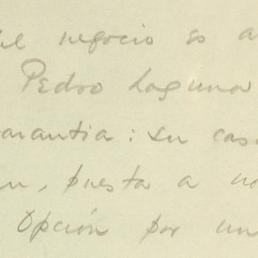 el negocio es a
Pedro Laguna
arantia: su cas
en, puesta a no
Opción por un